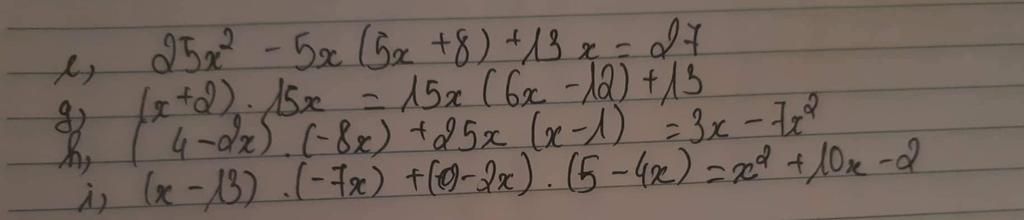 e, 25x² - 5x (5x + 8) + 13x = 27
g, (x+2) . 15x = 15x (6x - 12) + 13
h, (4 - 2x) . (-8x) + 25x (x - 1) = 3x - 7x²
i, (x - 13) . (-7x) + ( - 2x) . (5 - 4x) = x² + 10x - 2